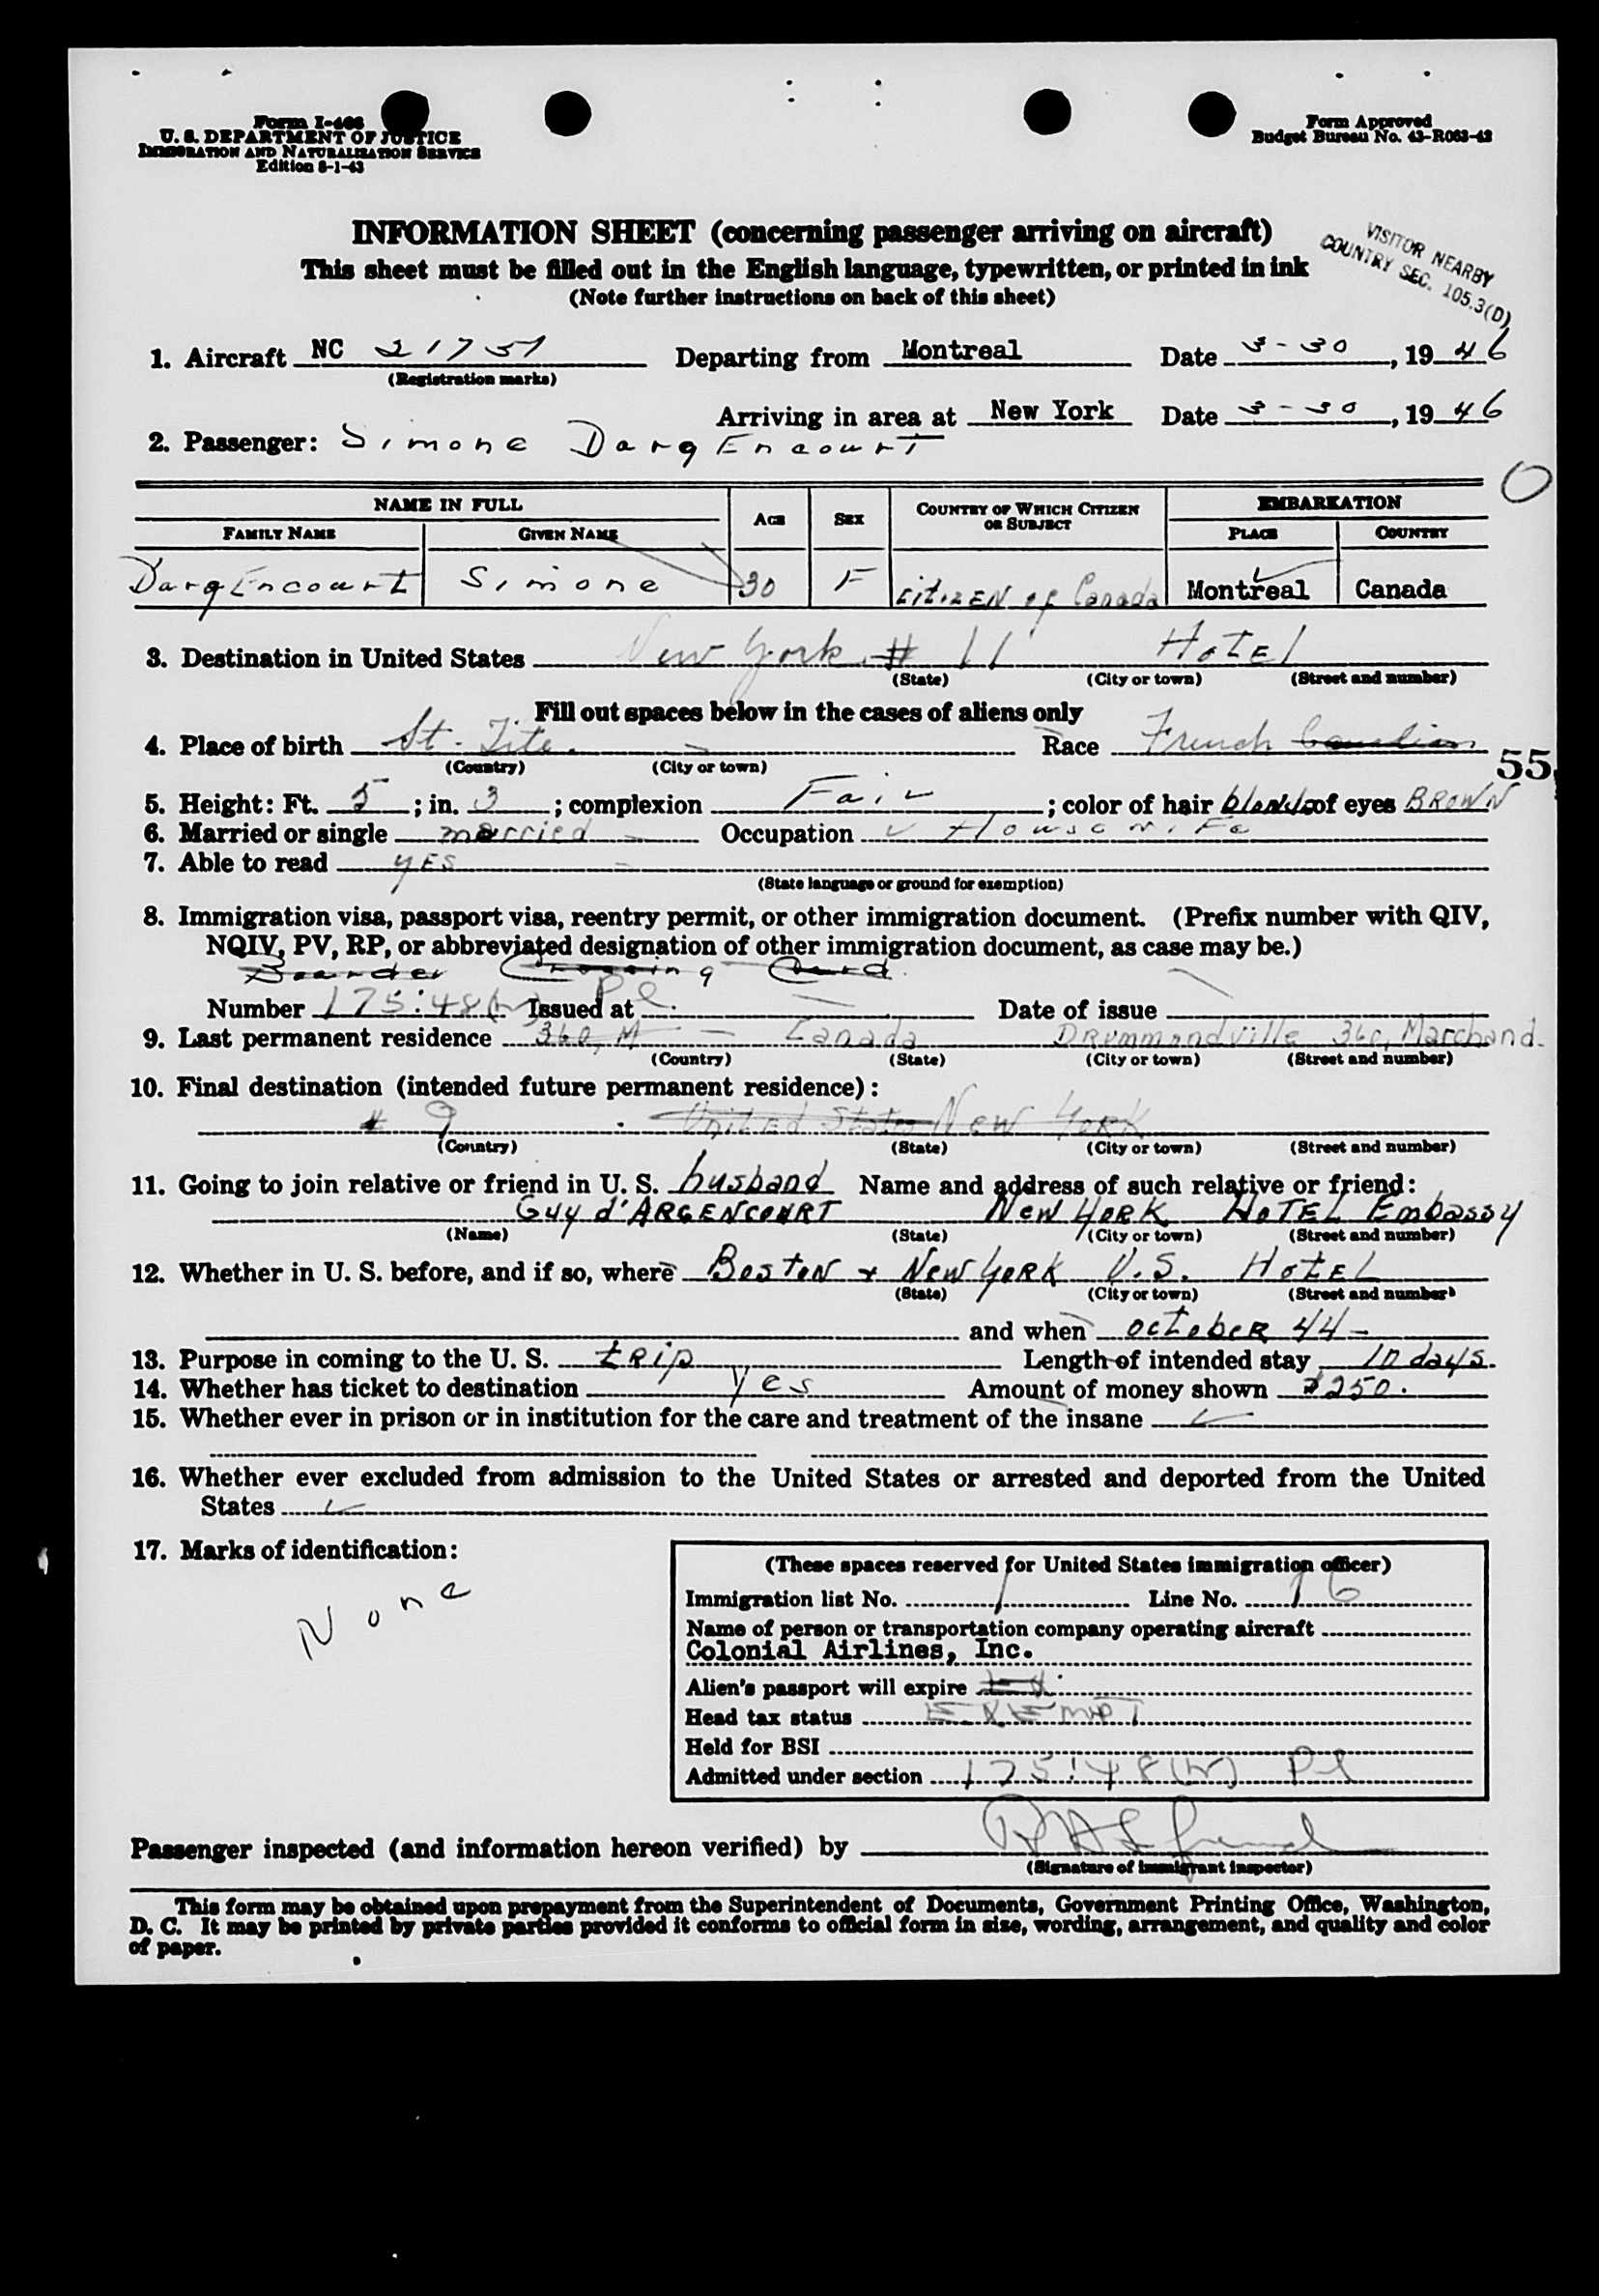 Form I-466
U. S. DEPARTMENT OF JUSTICE
IMMIGRATION AND NATURALIZATION SERVICE
Edition 8-1-43
Form Approved
Budget Bureau No. 43-R063-42
INFORMATION SHEET (concerning passenger arriving on aircraft)
This sheet must be filled out in the English language, typewritten, or printed in ink
(Note further instructions on back of this sheet)
VISITOR NEARBY
COUNTRY SEC. 105.3(D)
1. Aircraft NC 21751 Departing from Montreal Date 3-30, 1946
(Registration marks)
Arriving in area at New York Date 3-30, 1946
2. Passenger: Simone DargEncourT
O
NAME IN FULL AGE SEX COUNTRY OF WHICH CITIZEN OR SUBJECT EMBARKATION
FAMILY NAME GIVEN NAME PLACE COUNTRY
DargEncourt Simone 30 F citizEN of Canada Montreal Canada
3. Destination in United States New York # 11 HoTEl
(State) (City or town) (Street and number)
Fill out spaces below in the cases of aliens only
4. Place of birth St. Tite. Race French Canadian
(Country) (City or town)
55
5. Height: Ft. 5; in. 3; complexion Fair; color of hair blond; of eyes BROWN
6. Married or single married Occupation Housewife
7. Able to read yES
(State language or ground for exemption)
8. Immigration visa, passport visa, reentry permit, or other immigration document. (Prefix number with QIV,
NQIV, PV, RP, or abbreviated designation of other immigration document, as case may be.)
Boarder Crossing Card
Number 175:48 Issued at Pl. Date of issue
9. Last permanent residence 360, M Canada DRummondville 360, Marchand.
(Country) (State) (City or town) (Street and number)
10. Final destination (intended future permanent residence):
# 9 United States New YORK
(Country) (State) (City or town) (Street and number)
11. Going to join relative or friend in U. S. husband Name and address of such relative or friend:
Guy d'ARGENCOURT New YORK HOTEL Embassy
(Name) (State) (City or town) (Street and number)
12. Whether in U. S. before, and if so, where Boston + New YORK U.S. HotEl
(State) (City or town) (Street and number)
and when octobeR 44-
13. Purpose in coming to the U. S. tRip Length of intended stay 10 days.
14. Whether has ticket to destination Yes Amount of money shown $250.
15. Whether ever in prison or in institution for the care and treatment of the insane
16. Whether ever excluded from admission to the United States or arrested and deported from the United
States
17. Marks of identification:
None
(These spaces reserved for United States immigration officer)
Immigration list No. 1 Line No. 16
Name of person or transportation company operating aircraft
Colonial Airlines, Inc.
Alien's passport will expire
Head tax status EXEMPT
Held for BSI
Admitted under section 175:48 Pl
Passenger inspected (and information hereon verified) by
(Signature of immigrant inspector)
This form may be obtained upon prepayment from the Superintendent of Documents, Government Printing Office, Washington,
D. C. It may be printed by private parties provided it conforms to official form in size, wording, arrangement, and quality and color
of paper.